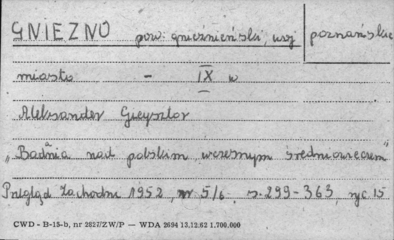 GNIEZNO pow. gnieźnieński, woj poznańskie
miasto - IX w
Aleksander Gieysztor
„Badania nad polskim wczesnym średniowieczem"
Przegląd Zachodni 1952, nr 5/6, s. 299-363, ryc 15
CWD - B-15-b, nr 2827/ZW/P — WDA 2694 13.12.62 1.700.000